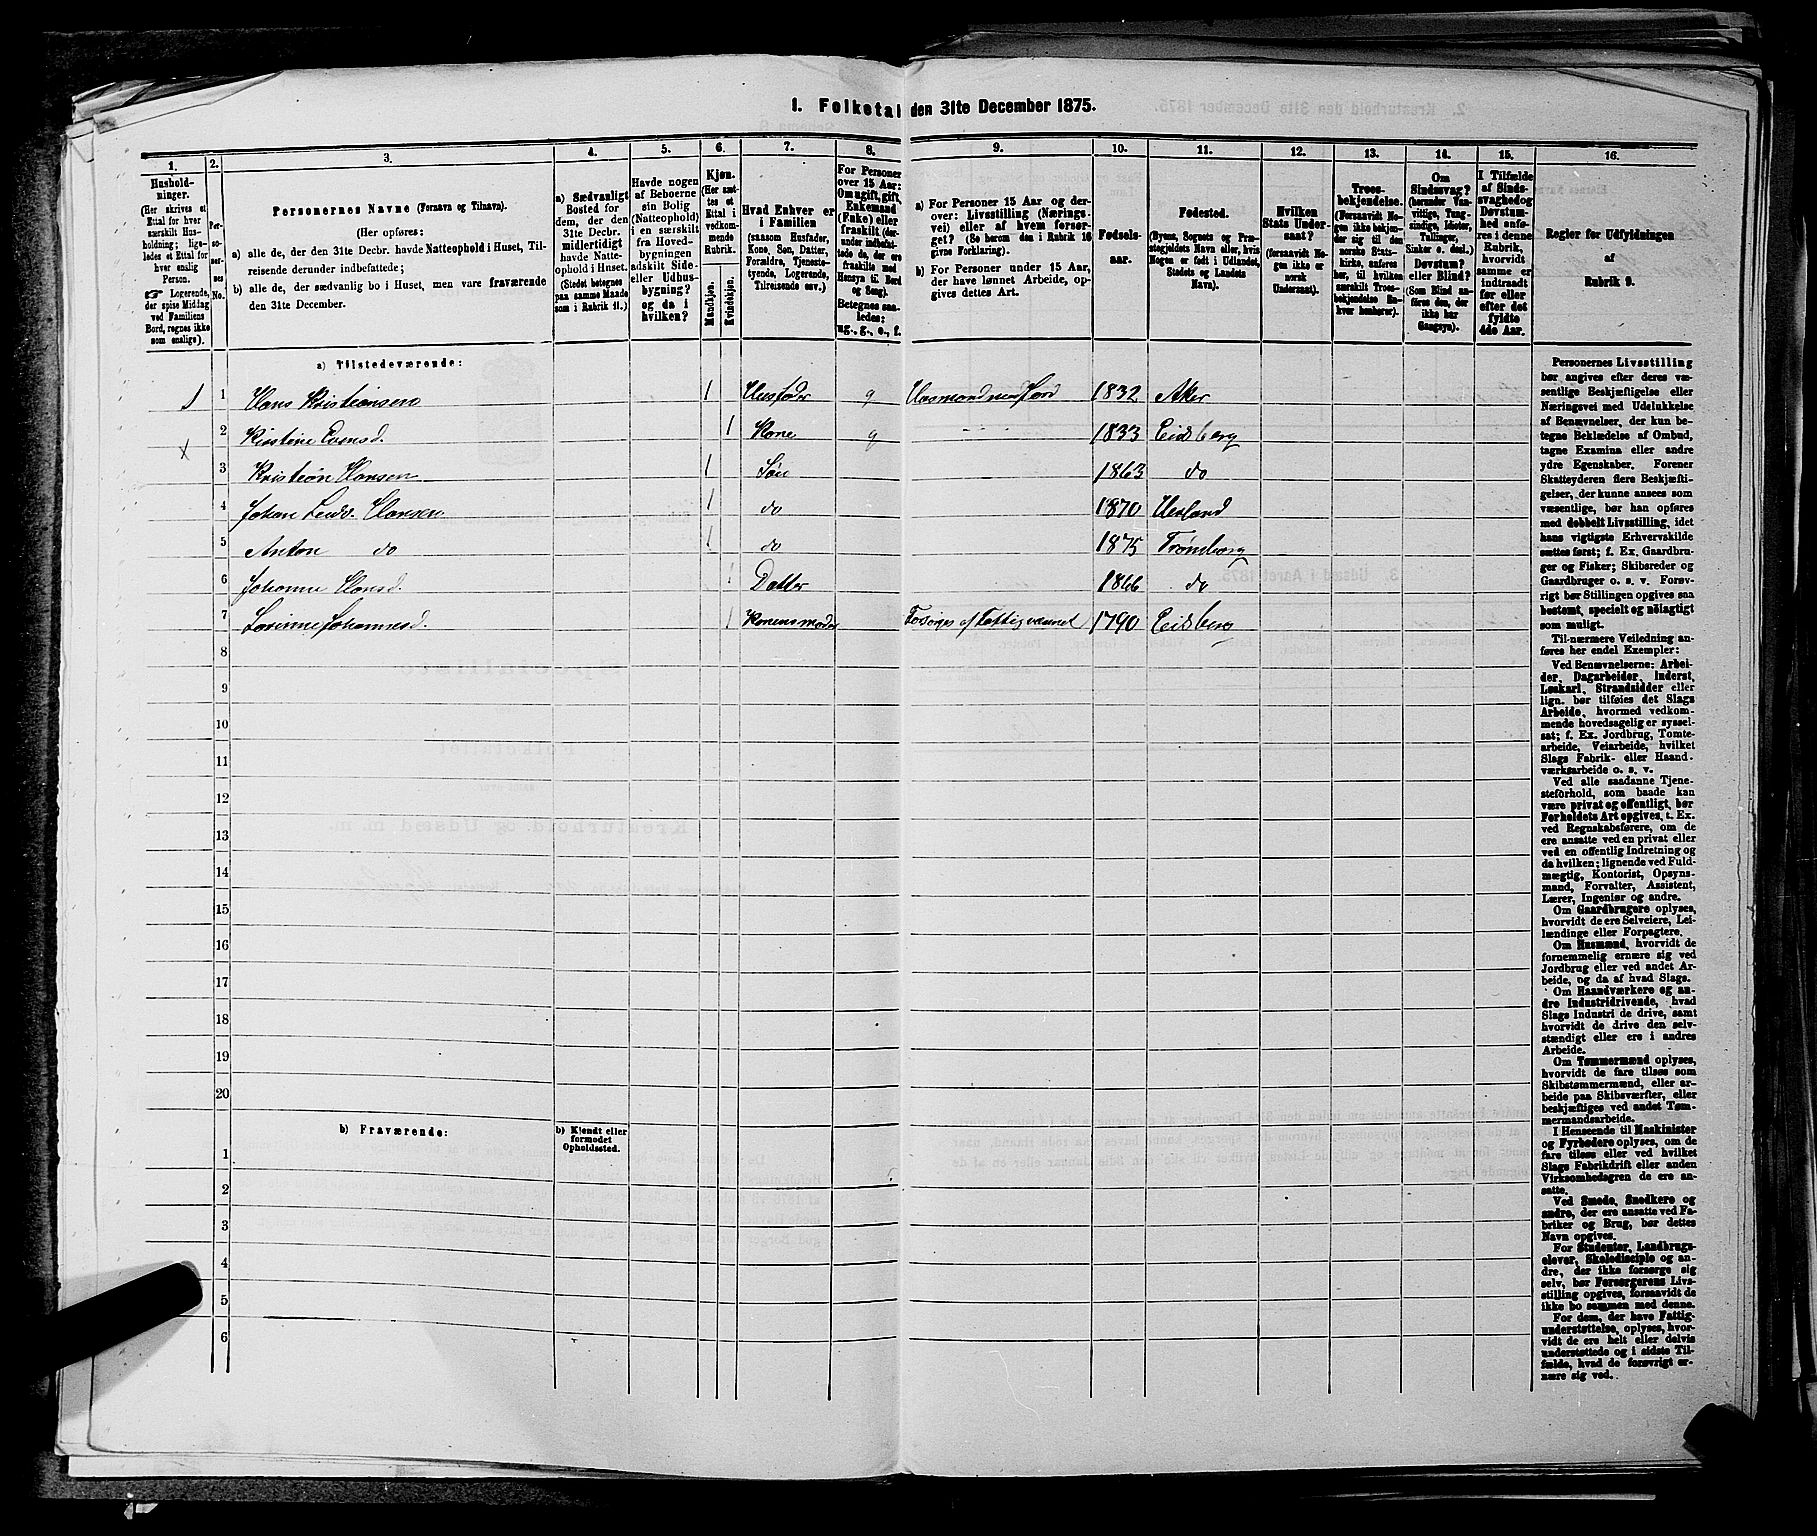 1. Folketal den 31te December 1875.
1.
2.
3.
4.
5.
6.
7.
8.
9.
10.
11.
12.
13.
14.
15.
16.
Husholdninger.
(Her skrives et Ettal for hver særskilt Husholdning; ligeledes et Ettal for hver enslig Person.
☞ Logerende, der spise Middag ved Familiens Bord, regnes ikke som enslige).
Personernes No.
Personernes Navne (Fornavn og Tilnavn).
(Her opføres:
a) alle de, der den 31te Decbr. havde Natteophold i Huset, Tilreisende derunder indbefattede;
b) alle de, der sædvanlig bo i Huset, men vare fraværende den 31te December.
a) Sædvanligt Bosted for dem, der den 31te Decbr. midlertidigt havde Natteophold i Huset.
(Stedet betegnes paa samme Maade som i Rubrik 11.)
Havde nogen af Beboerne sin Bolig (Natteophold) i en særskilt fra Hovedbygningen adskilt Side- eller Udhusbygning? og da i hvilken?
Kjøn.
(Her sættes et Ettal i vedkommende Rubrik.
Mandkjøn.
Kvindekjøn.
Hvad Enhver er i Familien
(saasom Husfader, Kone, Søn, Datter, Forældre, Tjenestetyende, Logerende, Tilreisende osv.)
For Personer over 15 Aar: Om ugift, gift, Enkemand (Enke) eller fraskilt (derunder indbefattede de, der ere fraskilte med Hensyn til Bord og Seng).
Betegnes saaledes: ug., g., e., f.
a) For Personer 15 Aar og derover: Livsstilling (Næringsvei) eller af hvem forsørget? (Se herom den i Rubrik 16 givne Forklaring).
b) For Personer under 15 Aar, der have lønnet Arbeide, opgives dettes Art.
Fødselsaar.
Fødested.
(Byens, Sognets og Præstegjeldets Navn eller, hvis Nogen er født i Udlandet, Stedets og Landets Navn).
Hvilken Stats Undersaat?
(forsaavidt Nogen ikke er norsk Undersaat).
Troesbekjendelse.
(Forsaavidt Nogen ikke bekjender sig til den norske Statskirke, anføres her, til hvilken særskilt Troesbekjendelse Enhver henhører).
Om Sindssvag? (herunder Vanvittige, Tungsindige, Idioter, Tullinger, Sinker o. desl.)
Døvstum? eller Blind? (Som Blind anføres den, der ikke har Gangsyn).
I Tilfælde af Sindssvaghed og Døvstumhed anføres i denne Rubrik, hvorvidt samme er indtraadt før eller efter det fyldte 4de Aar.
Regler for Udfyldningen
af
Rubrik 9.
a) Tilstedeværende:
1 Hans Kristiansen 1 Husfader g Husmand med Jord 1832 Aker
2 Kirstine Evensd. 1 Kone g 1833 Eidsberg
3 Kristian Hansen 1 Søn 1863 do
4 Johan Ludv. Hansen 1 do 1870
5 Anton do 1 do 1875 Trømborg
6 Johanne Hansd. 1 Datter 1866 do
7 Johannesd. 1 Konens moder Forsørges af Fattigvæsnet 1790 Eidsberg
8
9
10
11
12
13
14
15
16
17
18
19
20
b) Fraværende:
b) Kjendt eller formodet Opholdssted.
1
2
3
4
5
6
Personernes Livsstilling
bør angives efter deres væ-
sentlige Beskjæftigelse eller
Næringsvei med Udelukkelse
af Benævnelser, der kun be-
tegne Beklædelse af Ombud,
tagne Examina eller andre
ydre Egenskaber. Forener
Skatteyderen flere Beskjæfti-
gelser, der kunne ansees som
væsentlige, bør han opføres
med dobbelt Livsstilling, idet
hans vigtigste Erhvervskilde
sættes først; f. Ex. Gaardbru-
ger og Fisker; Skibsreder og
Gaardbruger o. s. v. Forøv-
rigt bør Stillingen opgives saa
bestemt, specielt og nøiagtigt
som muligt.
Til nærmere Veiledning an-
føres her endel Exempler:
Ved Benævnelserne: Arbei-
der, Dagarbeider, Inderst,
Løskarl, Strandsidder eller
lign. bør tilføies det Slags
Arbeide, hvormed vedkom-
mende hovedsagelig er syssel-
sat; f. Ex. Jordbrug, Tomte-
arbeide, Veiarbeide, hvilket
Slags Fabrik- eller Haand-
værksarbeide o. s. v.
Ved alle saadanne Tjene-
steforhold, som baade kan
være privat og offentligt, bør
Forholdets Art opgives, t. Ex.
ved Regnskabsførere, om de
ere ansatte ved en privat eller
ved en offentlig Indretning og
da hvilken; lignende ved Fuld-
mægtig, Kontorist, Opsyns-
mand, Forvalter, Assistent,
Lærer, Ingeniør og andre.
Om Gaardbrugere oplyses,
hvorvidt de ere Selveiere, Lei-
lændinge eller Forpagtere.
Om Husmænd, hvorvidt de
fornemmelig ernære sig ved
Jordbrug eller ved andet Ar-
beide, og da af hvad Slags.
Om Haandværkere og an-
dre Industridrivende, hvad
Slags Industri de drive, samt
hvorvidt de drive den selv-
stændigt eller ere i andres
Arbeide.
Om Tømmermænd oplyses,
hvorvidt de fare tilsøs som
Skibstømmermænd, eller ar-
beide paa Skibsværfter, eller
beskjæftiges ved andet Tøm-
mermandsarbeide.
I Henseende til Maskinister
og Fyrbødere oplyses, om de
fare tilsøs eller ved hvilket
Slags Fabrikdrift eller anden
Virksomhedsgren de ere an-
satte.
Ved Smede, Snedkere og
andre, der ere ansatte ved Fa-
briker og Brug, bør dettes
Navn opgives.
For Studenter, Landbrugs-
elever, Skoledisciple og an-
dre, der ikke forsørge sig
selv, bør Forsørgerens Livs-
stilling opgives, forsaavidt de
ikke bo sammen med denne.
For dem, der have Fattig-
understøttelse, oplyses, hvor-
vidt de ere helt eller delvis
understøttede og i sidste Til-
fælde, hvad de forøvrigt er-
nære sig ved.